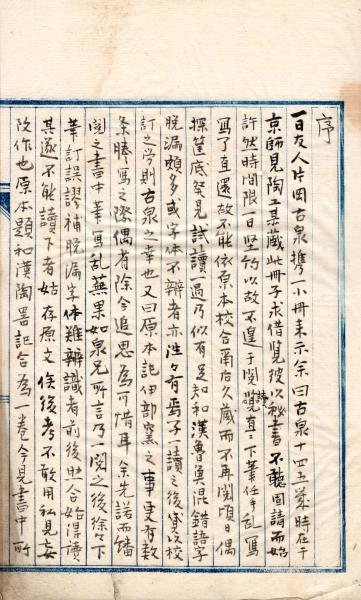 序
一日友人片岡古泉携一小冊来示余曰古泉十四五歳時在于
京師見陶工某蔵此冊子求借覧彼以秘書不聴固請而始
許然時間限一日堅約以故不遑于閲覧直々下筆任手乱写
写了直還故不能依原本校合爾后久歳而不再閲頃日偶
探筐底発見試読過乃似有足知和漢魯魚混錯語字
脱漏頗多或字体不辨者亦往々有焉子一読之後賛以校
訂之労則古泉之幸也又曰原本記伊部窯之事更有数
条謄写之際偶省除今追思為可惜耳余先諾而繙
閲之書中筆写乱蕪果如泉兄所言乃一閲之後徐々下
筆訂誤謬補脱漏字体難辨識者前後照合始得読
其遂不能読下者姑存原文俟後考不敢用私見妄
改作也原本題和漢陶器記合為一巻今見書中所